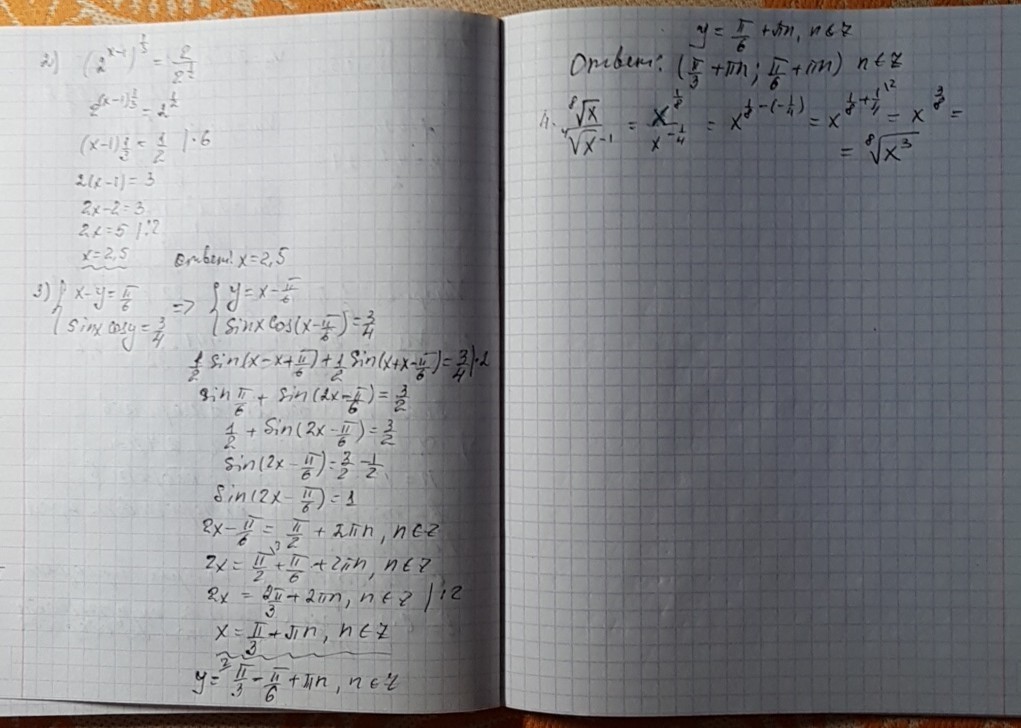 2) (2^(x-1))^(1/3) = 2/2^(1/2)
2^((x-1)1/3) = 2^(1/2)
(x-1)1/3 = 1/2 | ·6
2(x-1) = 3
2x-2=3
2x=5 |:2
x=2,5 Ответ: x=2,5
3) { x-y=π/6 => { y=x-π/6
sinx cosy=3/4 sinx cos(x-π/6)=3/4
1/2 sin(x-x+π/6)+1/2 sin(x+x-π/6)=3/4 |·2
sin π/6 + sin(2x-π/6)=3/2
1/2 + sin(2x-π/6)=3/2
sin(2x-π/6)=3/2-1/2
sin(2x-π/6)=1
2x-π/6=π/2+2πn, n∈Z
2x=π/2\3+π/6+2πn, n∈Z
2x=2π/3+2πn, n∈Z |:2
x=π/3+πn, n∈Z
y=2\π/3-π/6+πn, n∈Z
y=π/6+πn, n∈Z
Ответ: (π/3+πn; π/6+πn) n∈Z
4. ⁸√x/⁴√x⁻¹ = x^(1/8)/x^(-1/4) = x^(1/8-(-1/4)) = x^(1/8+1/4\2) = x^(3/8) =
= ⁸√x³